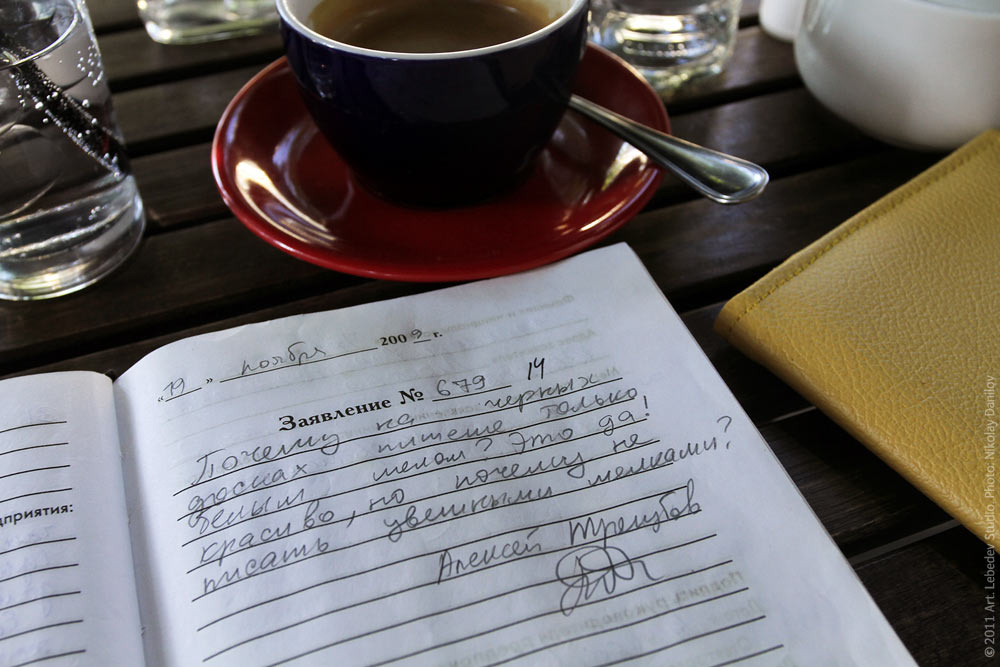 «19» ноября 2009 г.
Заявление № 679 14
Почему на черных
досках пишете только
белым мелом? Это да!
красиво, но почему не
писать цветными мелками?
Алексей Трегубов
дприятия:
© 2011 Art. Lebedev Studio. Photo: Nikolay Danilov